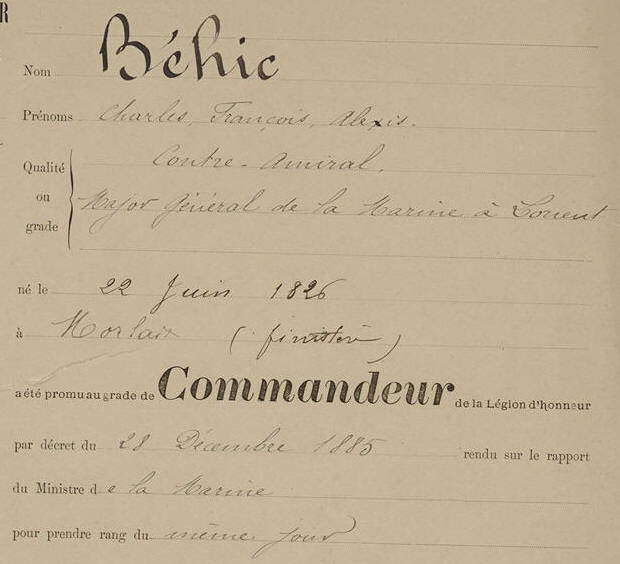 R
Nom Béhic
Prénoms Charles, François, Alexis.
Qualité ou grade Contre-Amiral.
Major Général de la Marine à Lorient
né le 22 Juin 1826
à Morlaix (finistère)
a été promu au grade de Commandeur de la Légion d'honneur
par décret du 28 Décembre 1885 rendu sur le rapport
du Ministre de la Marine
pour prendre rang du même jour